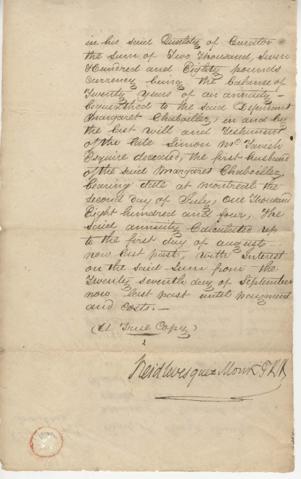 in his said Quality of Curator
the sum of Two Thousand, Seven
Hundred and Eighty pounds
Currency being the balance of
Twenty years of an annuity
bequeathed to the said Defendant
Margaret Chaboillez, in and by
the last Will and Testament
of the late Simon McTavish
Esquire deceased, the first husband
of the said Margaret Chaboillez
bearing date at Montreal the
second day of July, one Thousand
Eight hundred and four, the
said annuity Calculated up
to the first day of august
now last past, with Interest
on the said Sum from the
Twenty seventh day of September
now last past until payment
and costs.
(A True Copy)
Reid Levesque & Monk P.K.B.